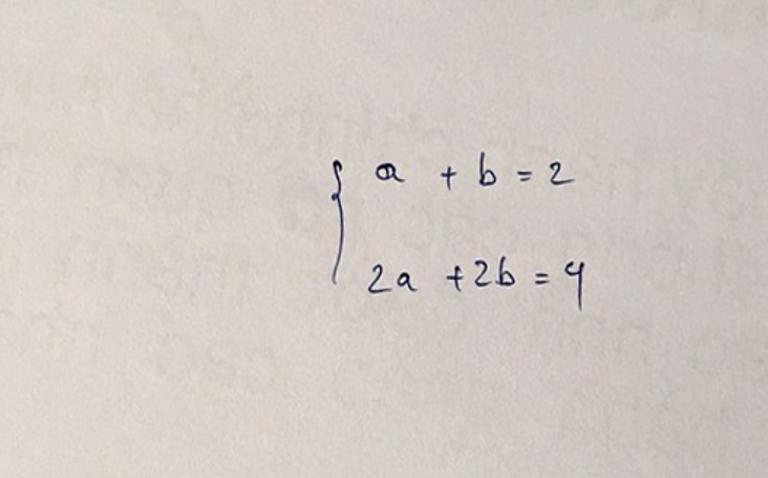 { a + b = 2
2a + 2b = 4